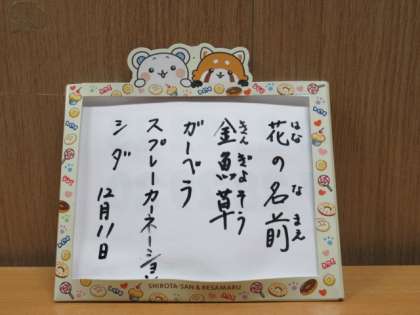 花の名前
はな なまえ
金魚草
きんぎょそう
ガーベラ
スプレーカーネーション
シダ
12月11日
SHIROTA-SAN & RESAMARU